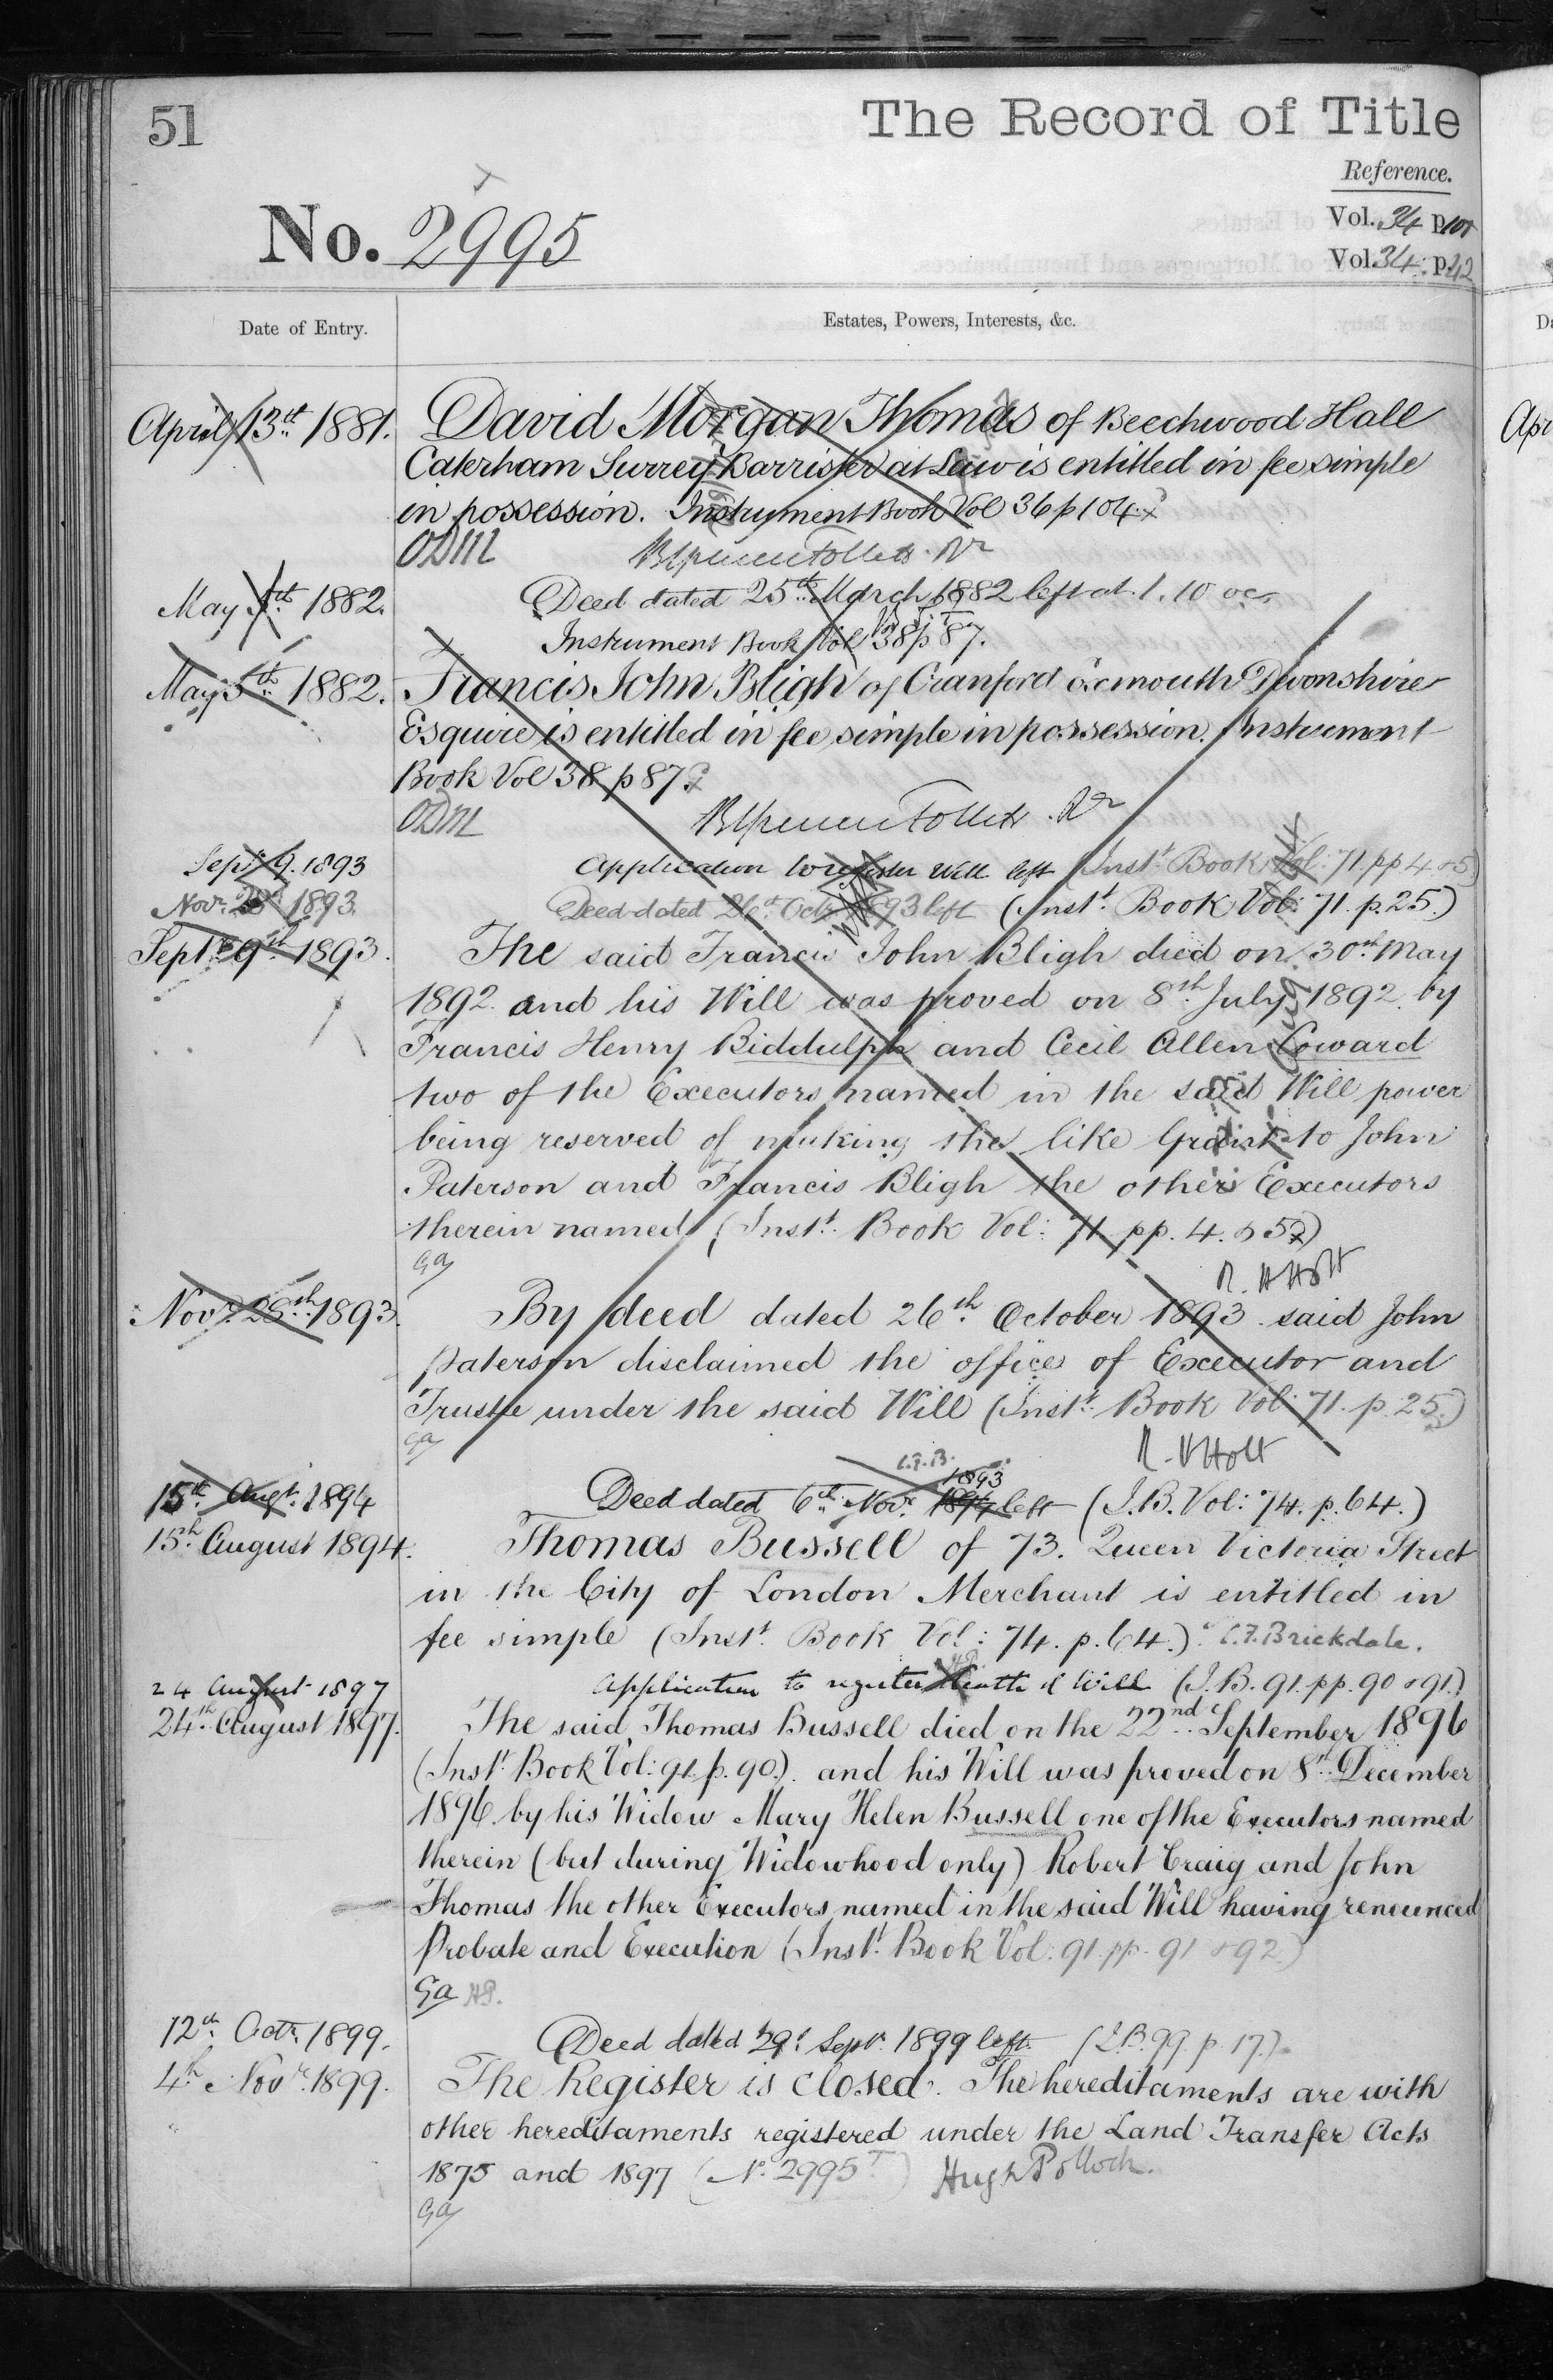 51
The Record of Title
Reference.
No. 2995
Vol. 34 p 101
Vol. 34. p. 42
Date of Entry.
Estates, Powers, Interests, &c.
April 13th 1881. David Morgan Thomas of Beechwood Hall
Caterham Surrey Barrister at Law is entitled in fee simple
in possession. Instrument Book Vol 36 p 104
ODM
May 5th 1882. Deed dated 25th March 1882 left at 1.10 oc.
Instrument Book Vol 38 p 87.
May 5th 1882. Francis John Bligh of Cranford Exmouth Devonshire
Esquire is entitled in fee simple in possession. Instrument
Book Vol 38 p 87
ODM
Sept 9. 1893 Application to register Will left (Inst. Book Vol: 71. pp 4 & 5)
Novr 28th 1893. Deed dated 26th Octr 1893 left (Inst. Book Vol: 71. p. 25.)
Septr 9th 1893. The said Francis John Bligh died on 30th May
1892 and his Will was proved on 8th July 1892 by
Francis Henry Biddulph and Cecil Allen Coward
two of the Executors named in the said Will power
being reserved of making the like Grant to John
Paterson and Francis Bligh the other Executors
therein named (Inst. Book Vol: 71. pp. 4. & 5)
GA
R. Holt
Novr 28th 1893. By deed dated 26th October 1893 said John
Paterson disclaimed the office of Executor and
Trustee under the said Will (Inst. Book Vol: 71. p. 25.)
GA
R. Holt
C.F.B.
1893
15th Augt. 1894 Deed dated 6th Novr 1894 left (I.B. Vol: 74. p. 64.)
15th August 1894. Thomas Bussell of 73. Queen Victoria Street
in the City of London Merchant is entitled in
fee simple (Inst. Book Vol: 74. p. 64.) C.F. Brickdale.
24 August 1897 Application to register death & Will (I.B. 91. pp. 90 & 91.)
24th August 1897. The said Thomas Bussell died on the 22nd September 1896
(Inst. Book Vol: 91. p. 90.) and his Will was proved on 8th December
1896 by his Widow Mary Helen Bussell one of the Executors named
therein (but during Widowhood only) Robert Craig and John
Thomas the other Executors named in the said Will having renounced
Probate and Execution (Inst. Book Vol: 91. pp. 91 & 92.)
GA HP.
12th Octr. 1899. Deed dated 29th Septr. 1899 left (I.B. 99. p. 17.)
4th Novr. 1899. The Register is closed. The hereditaments are with
other hereditaments registered under the Land Transfer Acts
1875 and 1897 (No. 2995T) Hugh Pollock.
GA